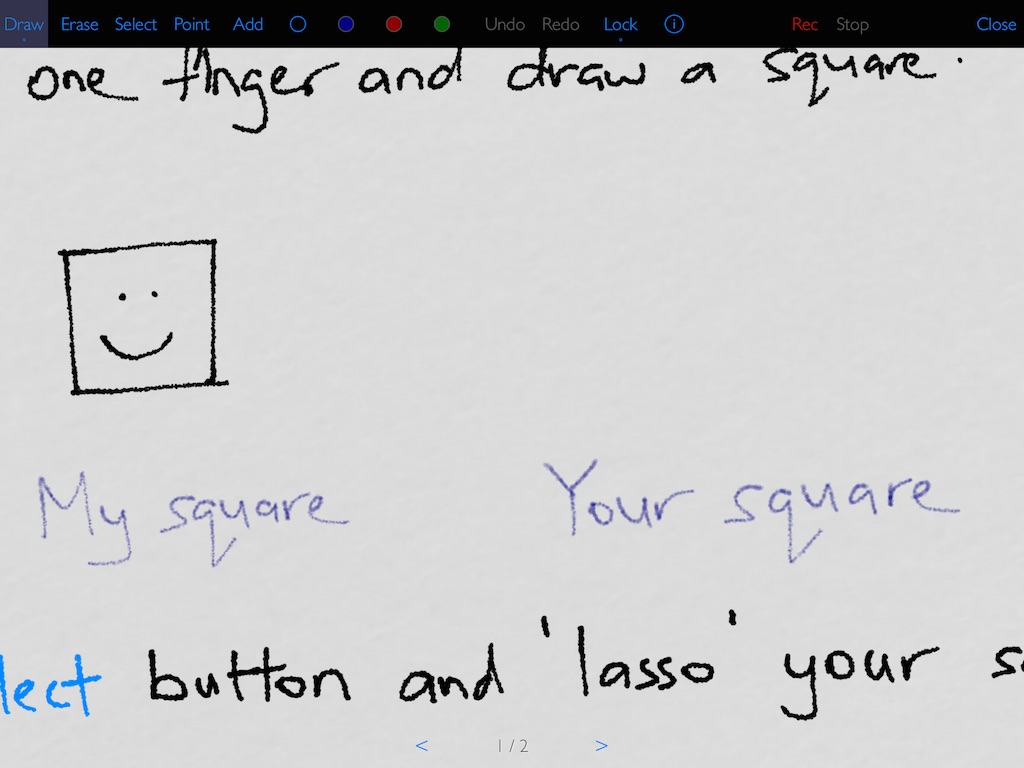 Draw Erase Select Point Add Undo Redo Lock i Rec Stop Close
one finger and draw a square.
My square Your square
lect button and 'lasso' your s
< 1/2 >